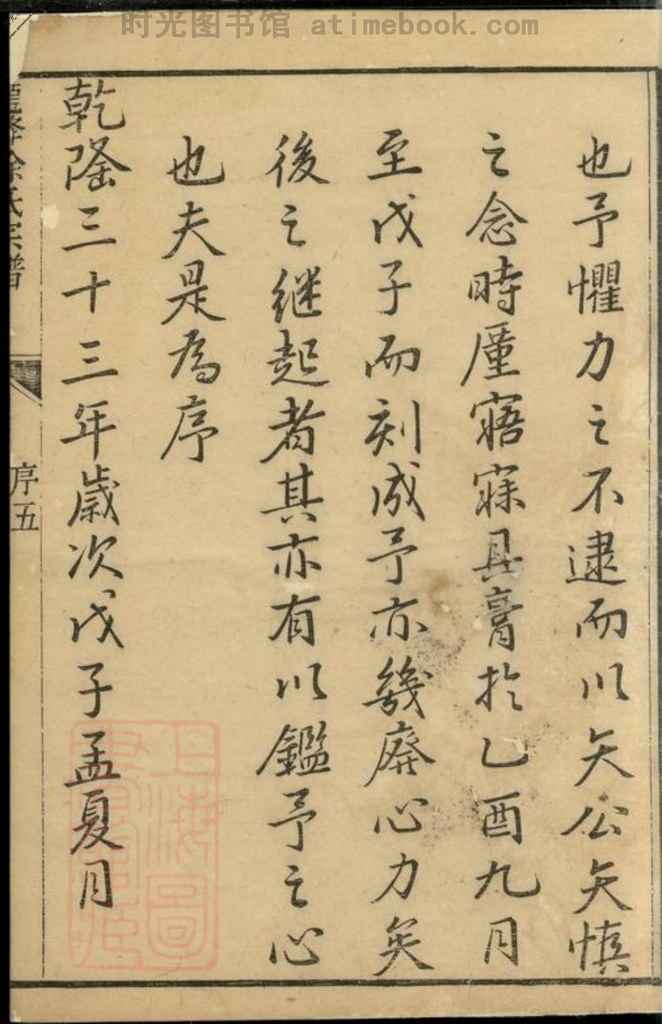 时光图书馆 atimebook.com
也予懼力之不逮而以矢公矢慎
之念時厪寤寐其膏於乙酉九月
至戊子而刻成予亦幾廢心力矣
後之继起者其亦有以鑑予之心
也夫是為序
乾隆三十三年歲次戊子孟夏月
徐氏宗譜
序五
上海圖書館藏